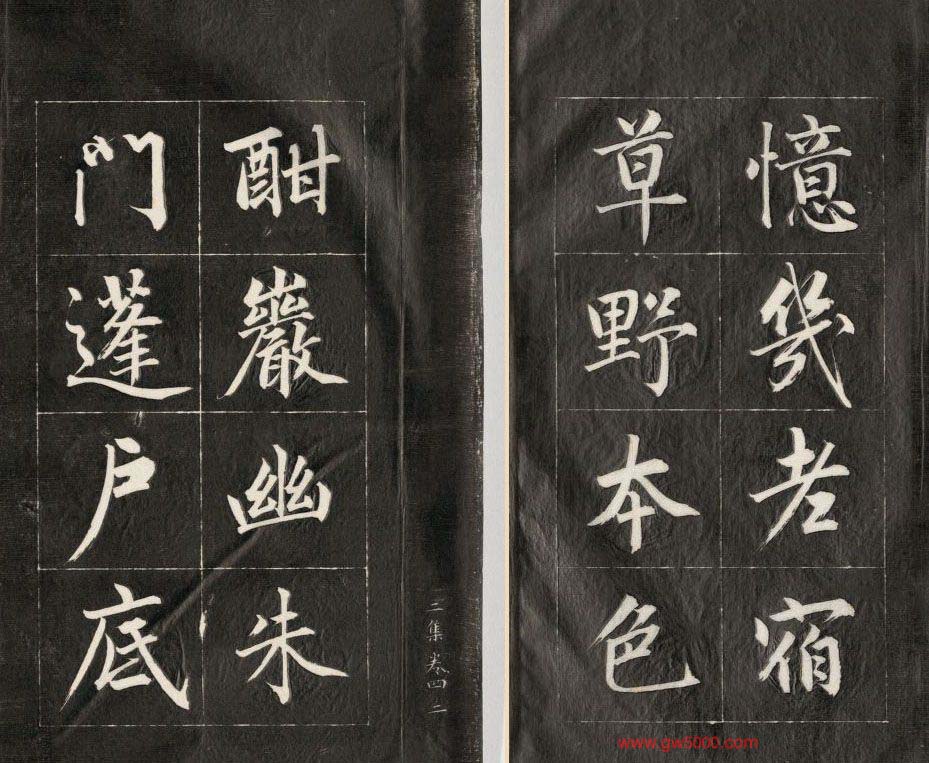 憶幾老宿
草野本色
酣巖幽朱
門蓬户底
二集卷四二
www.gw5000.com